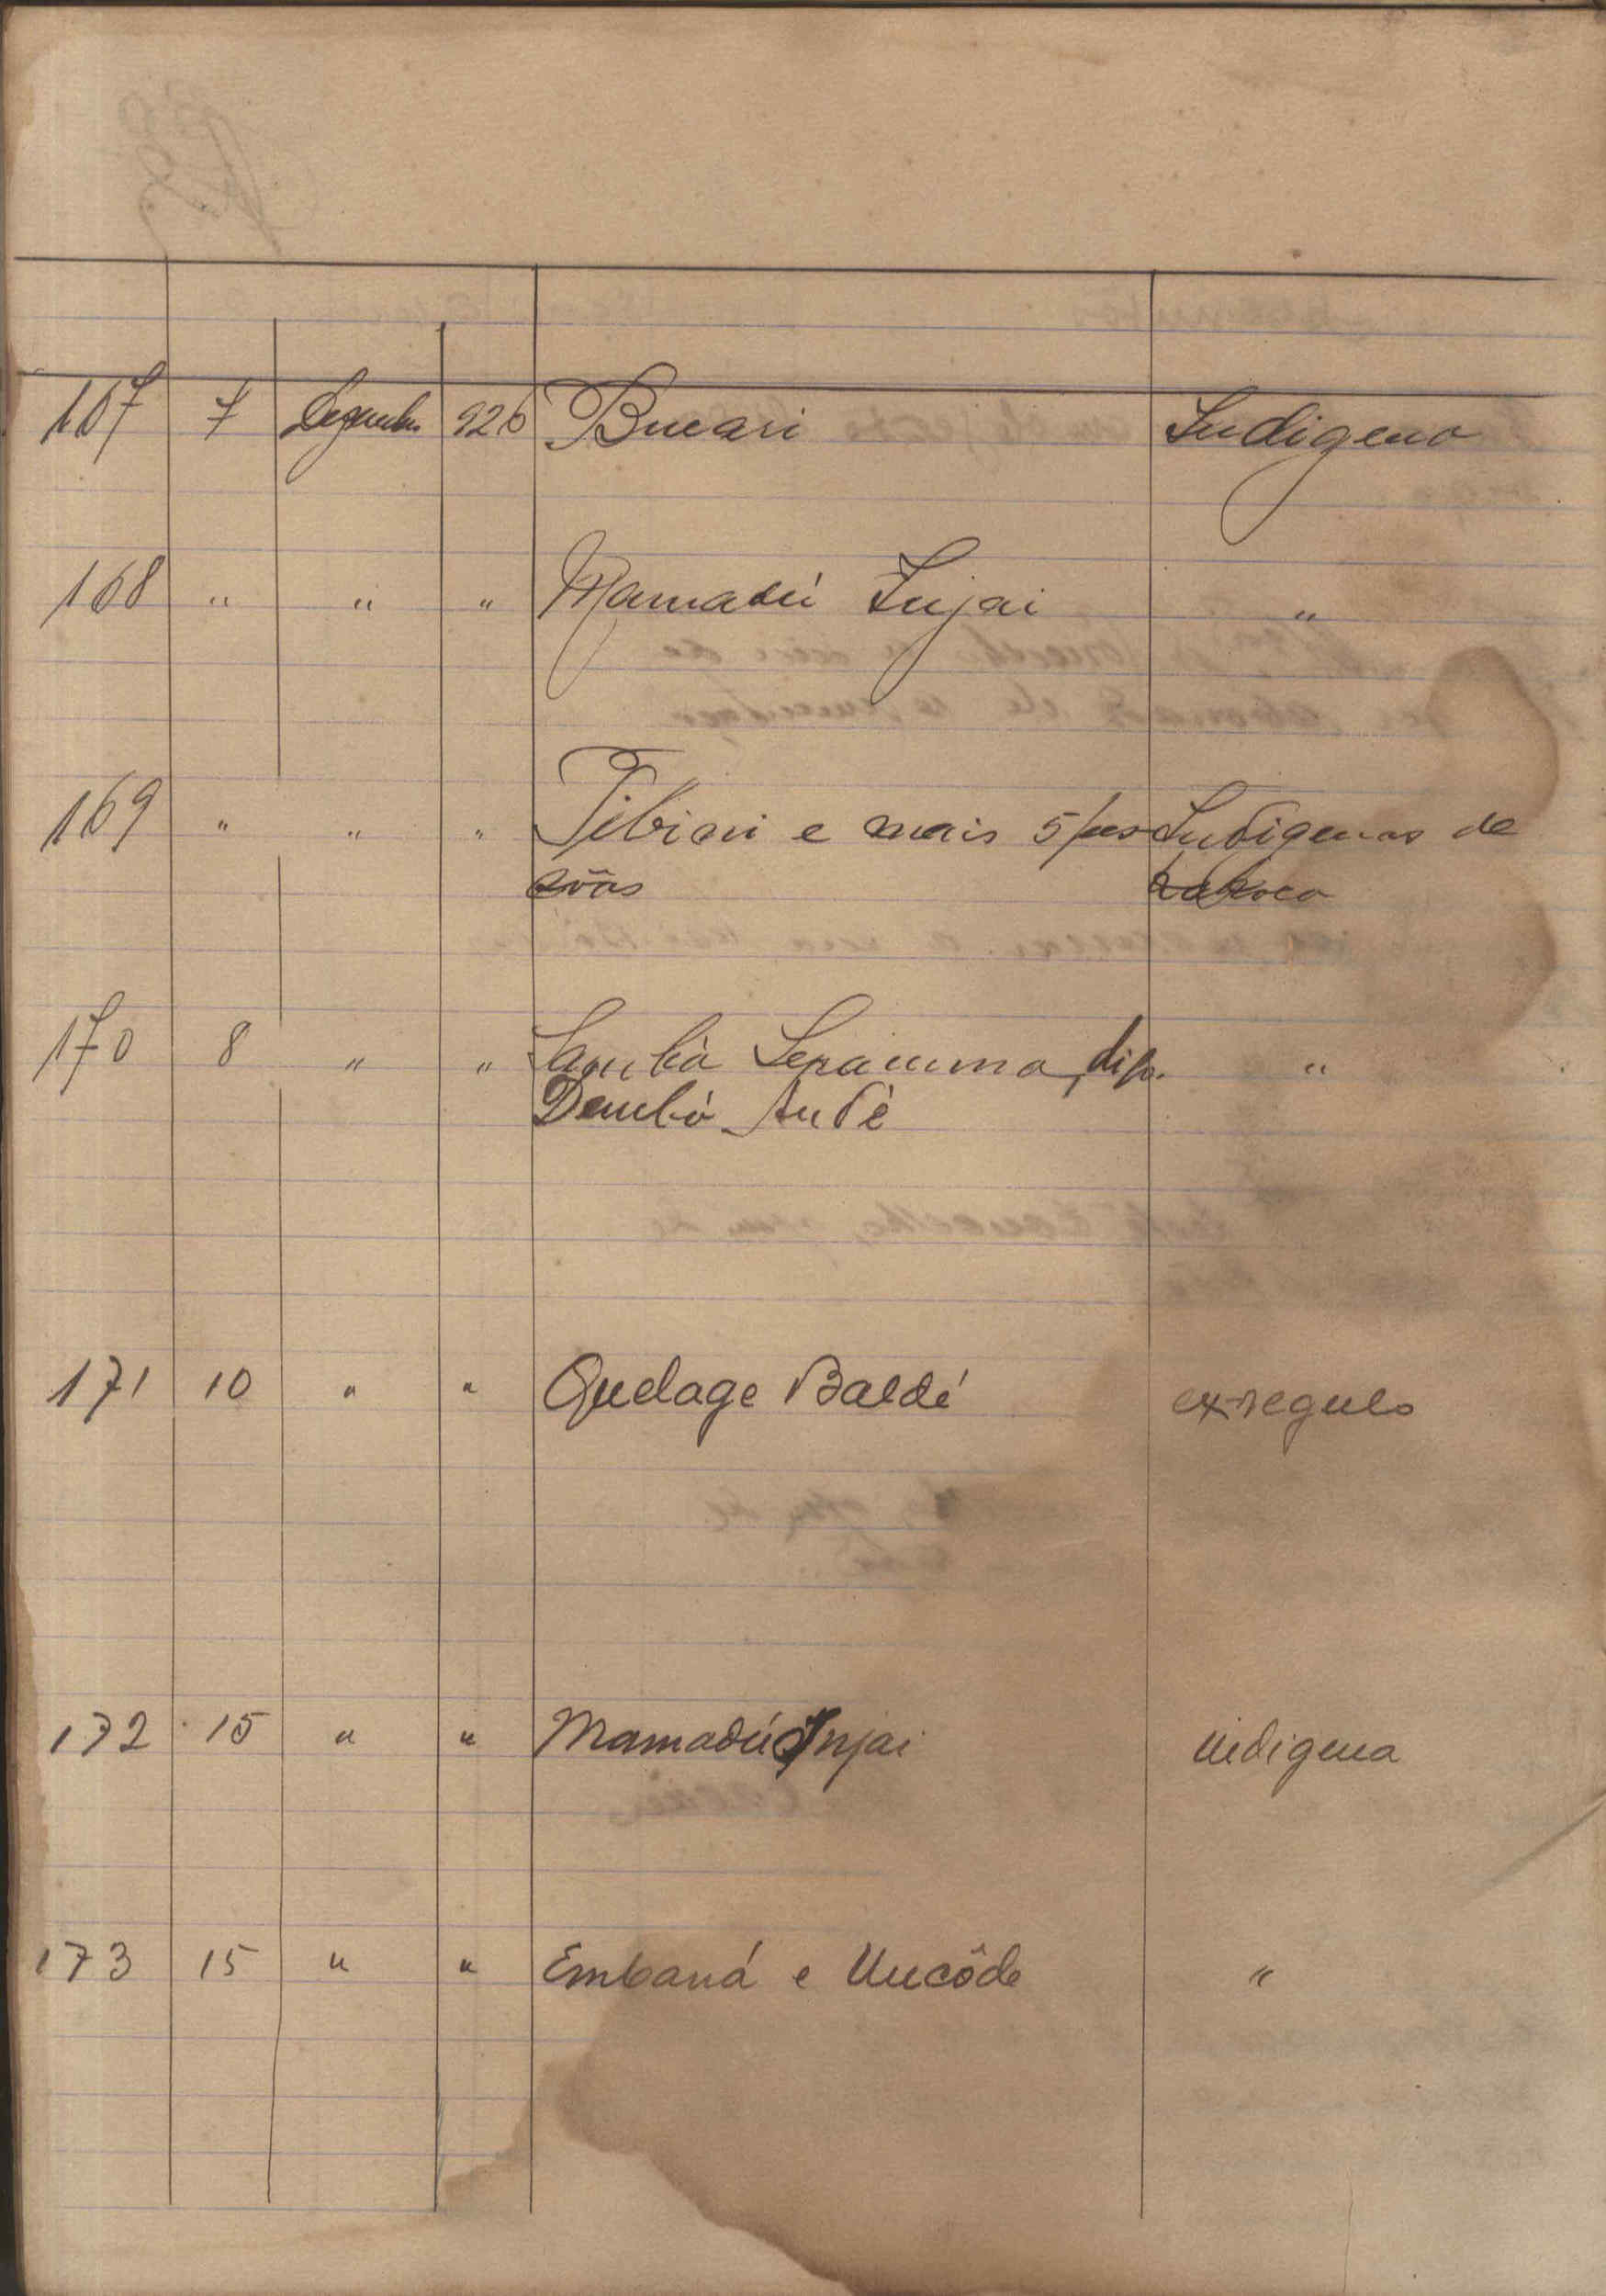 167 7 Dezembro 926 Bucari Indigena
168 " " " Mamadú Injai "
169 " " " Tibiri e mais 5 pes Indigenas de
sôas
170 8 " " Sambá "
Dembó Andé
171 10 " " Quelage Baldé ex-regulo
172 15 " " Mamadú Injai indigena
173 15 " " Embaná e Uncôde "